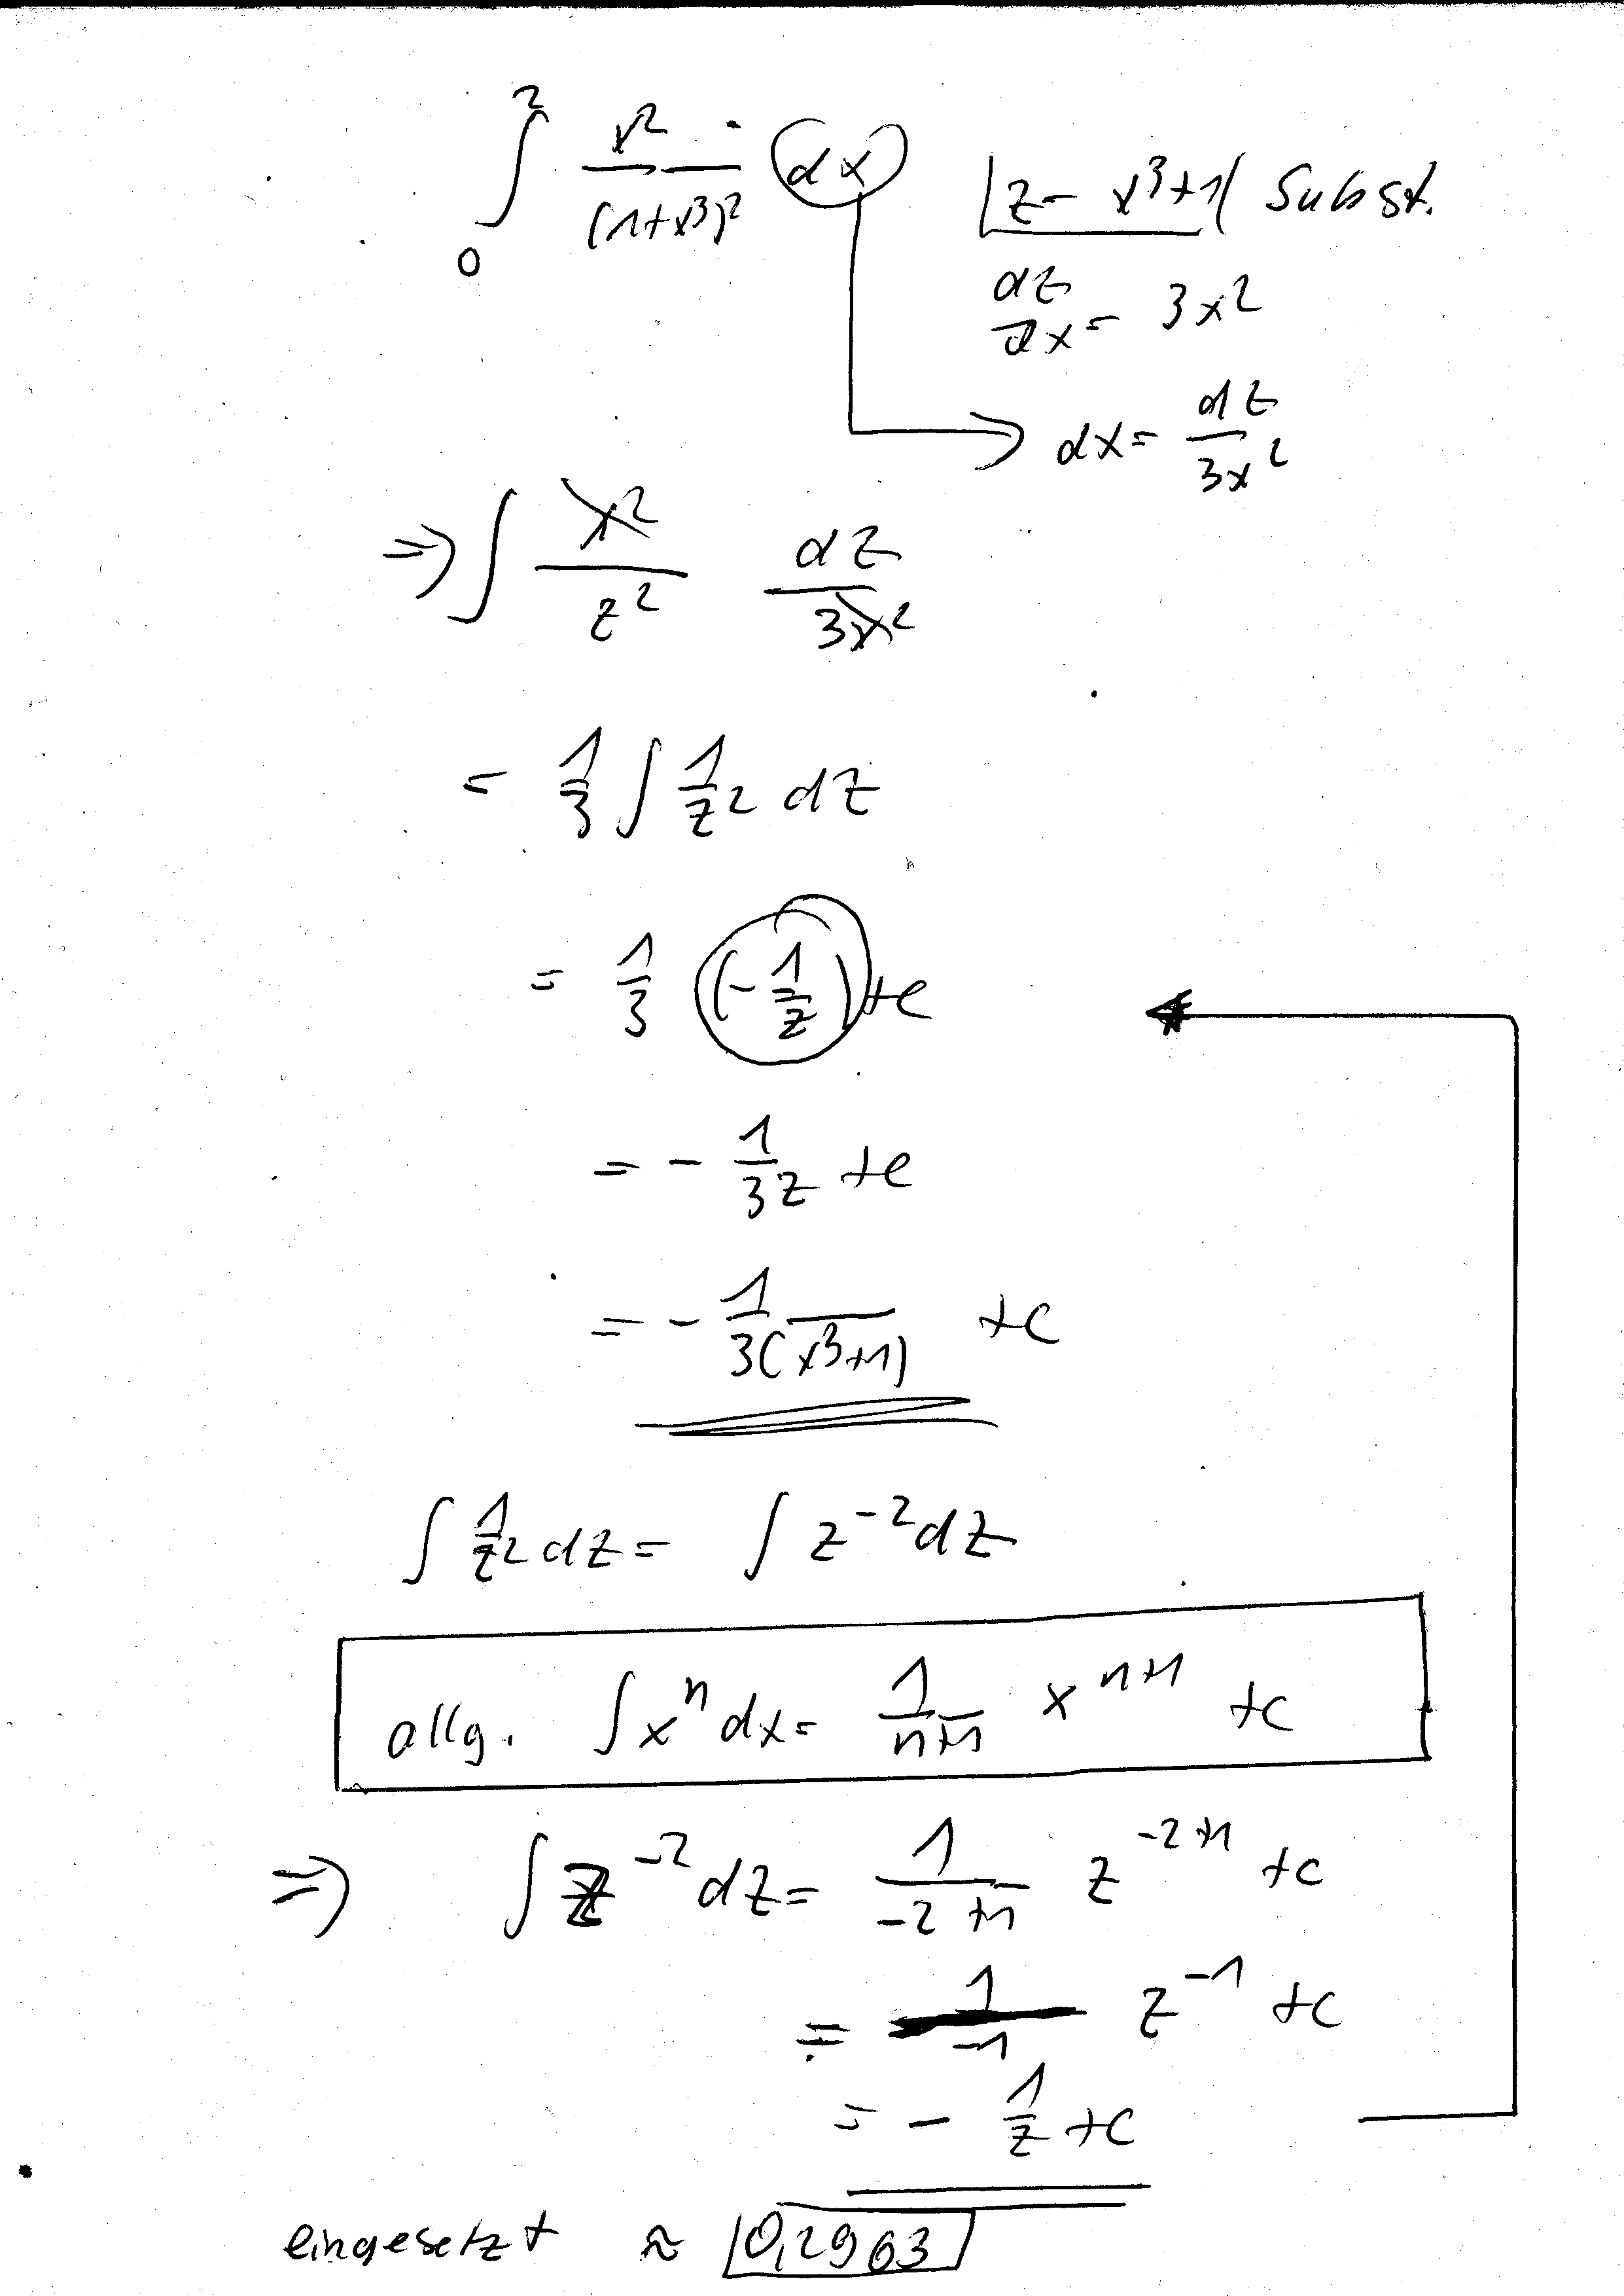 ∫₀² x²/(1+x³)² dx   z = x³+1 Subst.
dz/dx = 3x²
dx = dz/3x²
⇒ ∫ x²/z² dz/3x²
= 1/3 ∫ 1/z² dz
= 1/3 (-1/z) +c
= - 1/3z +c
= - 1/3(x³+1) +c
∫ 1/z² dz = ∫ z⁻² dz
allg. ∫ xⁿ dx = 1/n+1 xⁿ⁺¹ +c
⇒ ∫ z⁻² dz = 1/-2+1 z⁻²⁺¹ +c
= 1/-1 z⁻¹ +c
= - 1/z +c
eingesetzt ≈ 0,2963